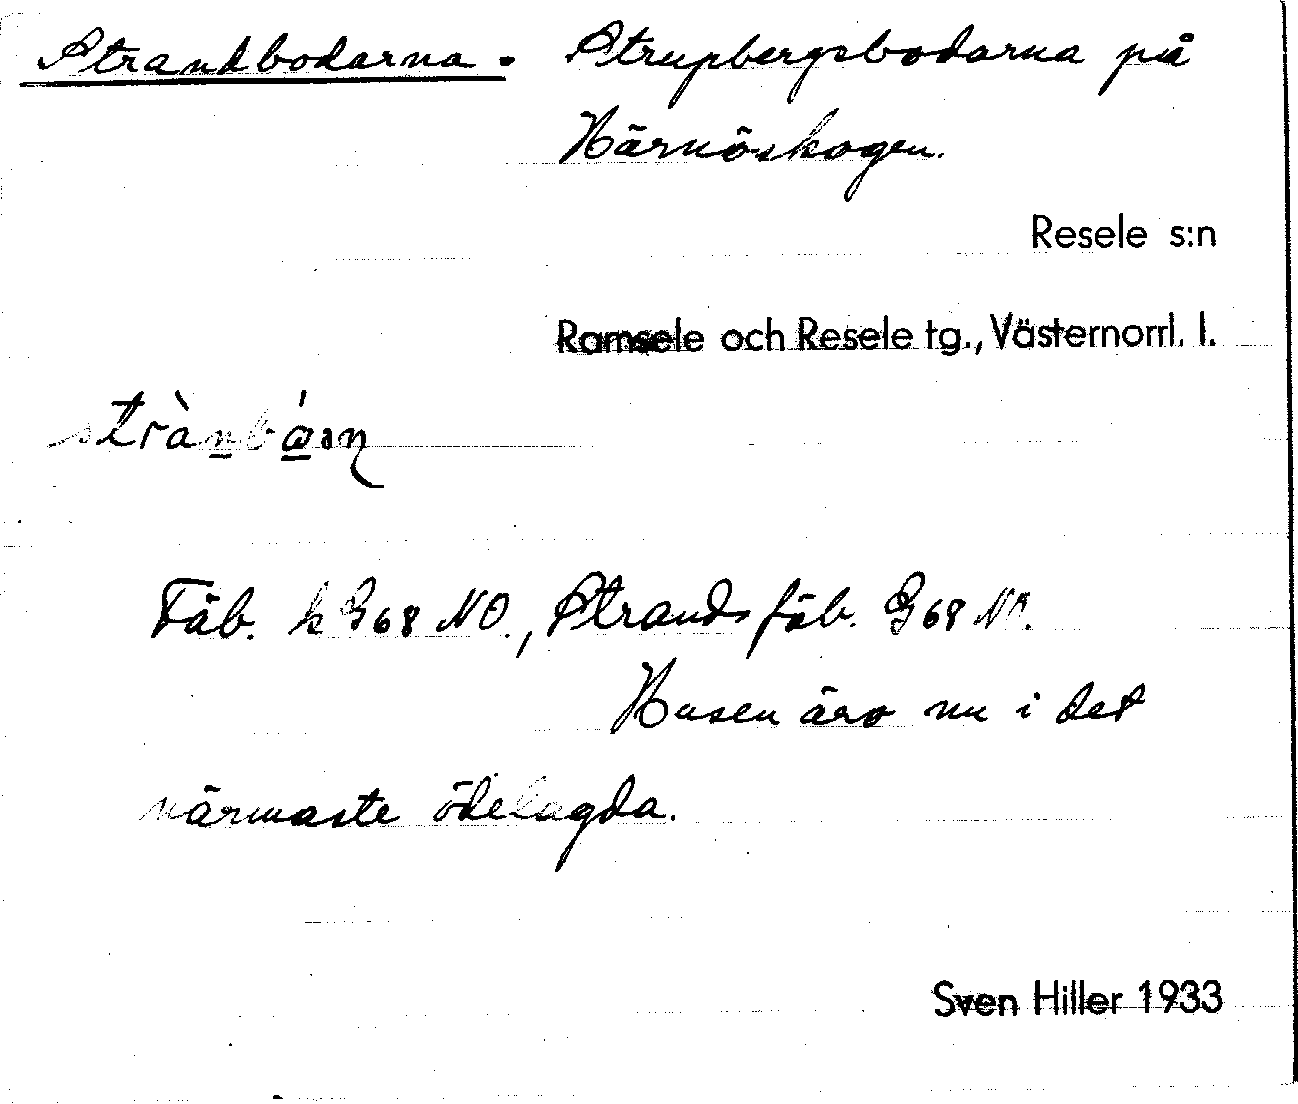 Strandbodarna. Strupbergsbodarna på
Härnöskogen.
Resele s:n
Ramsele och Resele tg., Västernorrl. l.
Fäb. k G68 NO., Strands fäb. G68 NO.
Husen äro nu i det
närmaste ödelagda.
Sven Hiller 1933